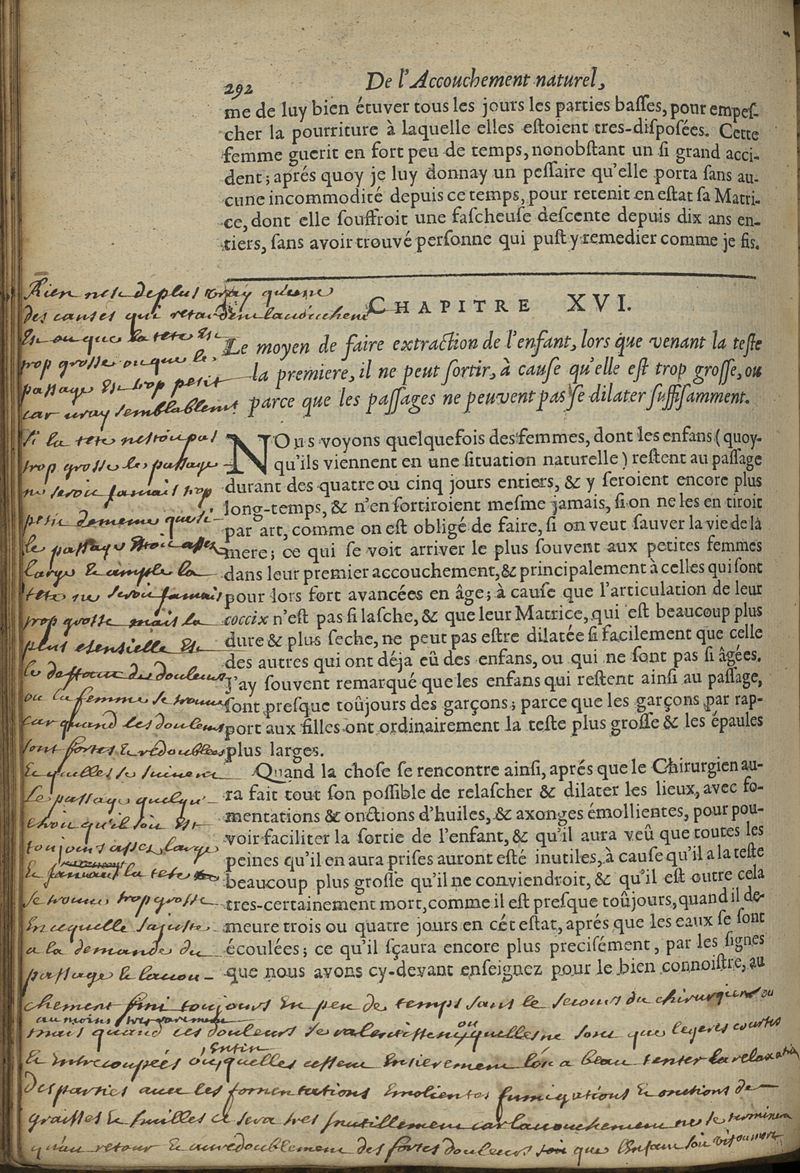 292 De l'Accouchement naturel,
me de luy bien étuver tous les jours les parties basses, pour empes-
cher la pourriture à laquelle elles estoient tres-disposées. Cette
femme guerit en fort peu de temps, nonobstant un si grand acci-
dent; aprés quoy je luy donnay un pessaire qu'elle porta sans au-
cune incommodité depuis ce temps, pour retenir en estat sa Matri-
ce, dont elle souffroit une fascheuse descente depuis dix ans en-
tiers, sans avoir trouvé personne qui pust y remedier comme je fis.
CHAPITRE XVI.
Le moyen de faire extraction de l'enfant, lors que venant la teste
la premiere, il ne peut sortir, à cause qu'elle est trop grosse, ou
parce que les passages ne peuvent pas se dilater suffisamment.
NOus voyons quelquefois des femmes, dont les enfans (quoy-
qu'ils viennent en une situation naturelle) restent au passage
durant des quatre ou cinq jours entiers, & y seroient encore plus
long-temps, & n'en sortiroient mesme jamais, si on ne les en tiroit
par art, comme on est obligé de faire, si on veut sauver la vie de la
mere; ce qui se voit arriver le plus souvent aux petites femmes
dans leur premier accouchement, & principalement à celles qui sont
pour lors fort avancées en âge; à cause que l'articulation de leur
coccix n'est pas si lasche, & que leur Matrice, qui est beaucoup plus
dure & plus seche, ne peut pas estre dilatée si facilement que celle
des autres qui ont déja eû des enfans, ou qui ne sont pas si âgées.
J'ay souvent remarqué que les enfans qui restent ainsi au passage,
sont presque toûjours des garçons; parce que les garçons par rap-
port aux filles ont ordinairement la teste plus grosse & les épaules
plus larges.
Quand la chose se rencontre ainsi, aprés que le Chirurgien au-
ra fait tout son possible de relascher & dilater les lieux, avec fo-
mentations & onctions d'huiles, & axonges émollientes, pour pou-
voir faciliter la sortie de l'enfant, & qu'il aura veû que toutes les
peines qu'il en aura prises auront esté inutiles, à cause qu'il a la teste
beaucoup plus grosse qu'il ne conviendroit, & qu'il est outre cela
tres-certainement mort, comme il est presque toûjours, quand il de-
meure trois ou quatre jours en cét estat, aprés que les eaux se sont
écoulées; ce qu'il sçaura encore plus precisément, par les signes
que nous avons cy-devant enseignez pour le bien connoistre, au
Rien nest de plus vray qu'une
des causes qui retardent laccouchement
Est ou que la tete est
trop grosse ou que le
passage est trop petit
car vray semblablement
si la tete nestoit pas
trop grosse le passage
ne seroit jamais trop
petit de meme que si
le passage etoit asses
large & ample la
tete ne seroit jamais
trop grosse mais la
plus esentielle est
le deffaut de douleurs
ou la femme se trouve
car quand les douleurs
sont fortes & redoublees
& quelles se suivent
le passage quelqu'
etroit qu'il soit est
toujours asses large
& jamais la tete ne
se trouve trop grosse
a la demande du
passage & laccou-
chement fini toujours en peu de temps sans le secours du chirurgien ou
mais quand ces douleurs se ralentissent ou quelles ne sont que legeres courtes
& entrecoupées ou quelles cessent entierement lon a beau tenter la relaxation
des parties avec les fomentations emolientes fumigations & onctions de
graisses & huilles ce sera tres inutillement car laccouchement ne se terminera
qu'au retour & au redoublement des fortes douleurs soit que lenfant soit